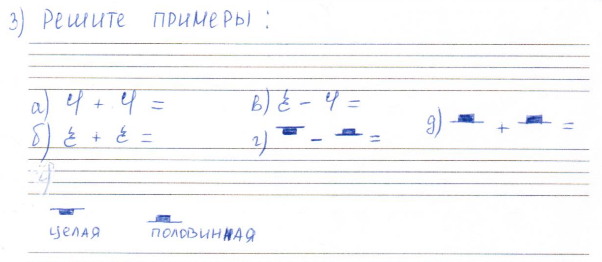 3) РЕШИТЕ ПРИМЕРЫ:
а) 𝄾 + 𝄾 = в) 𝄽 - 𝄾 =
б) 𝄽 + 𝄽 = г) 𝄻 - 𝄼 = д) 𝄼 + 𝄼 =
ЦЕЛАЯ ПОЛОВИННАЯ